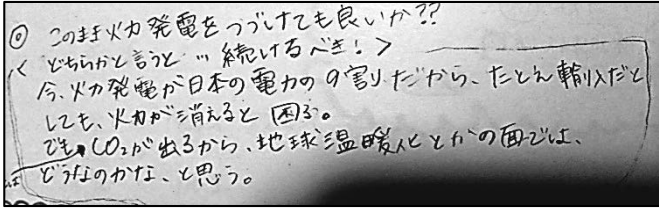 ◎ このまま火力発電をつづけても良いか??
< どちらかと言うと…続けるべき! >
今、火力発電が日本の電力の9割りだから、たとえ輸入だと
しても、火力が消えると困る。
でもCO2が出るから、地球温暖化とかの面では、
どうなのかな、と思う。